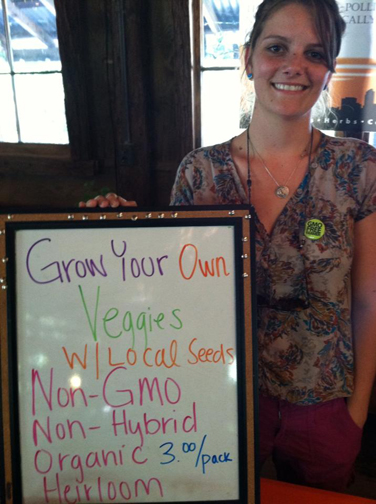 -POLL
CALLY
Herbs • C
GMO
Grow Your Own
Veggies
W/ Local Seeds
Non-GMO
Non-Hybrid
Organic 3.00/pack
Heirloom